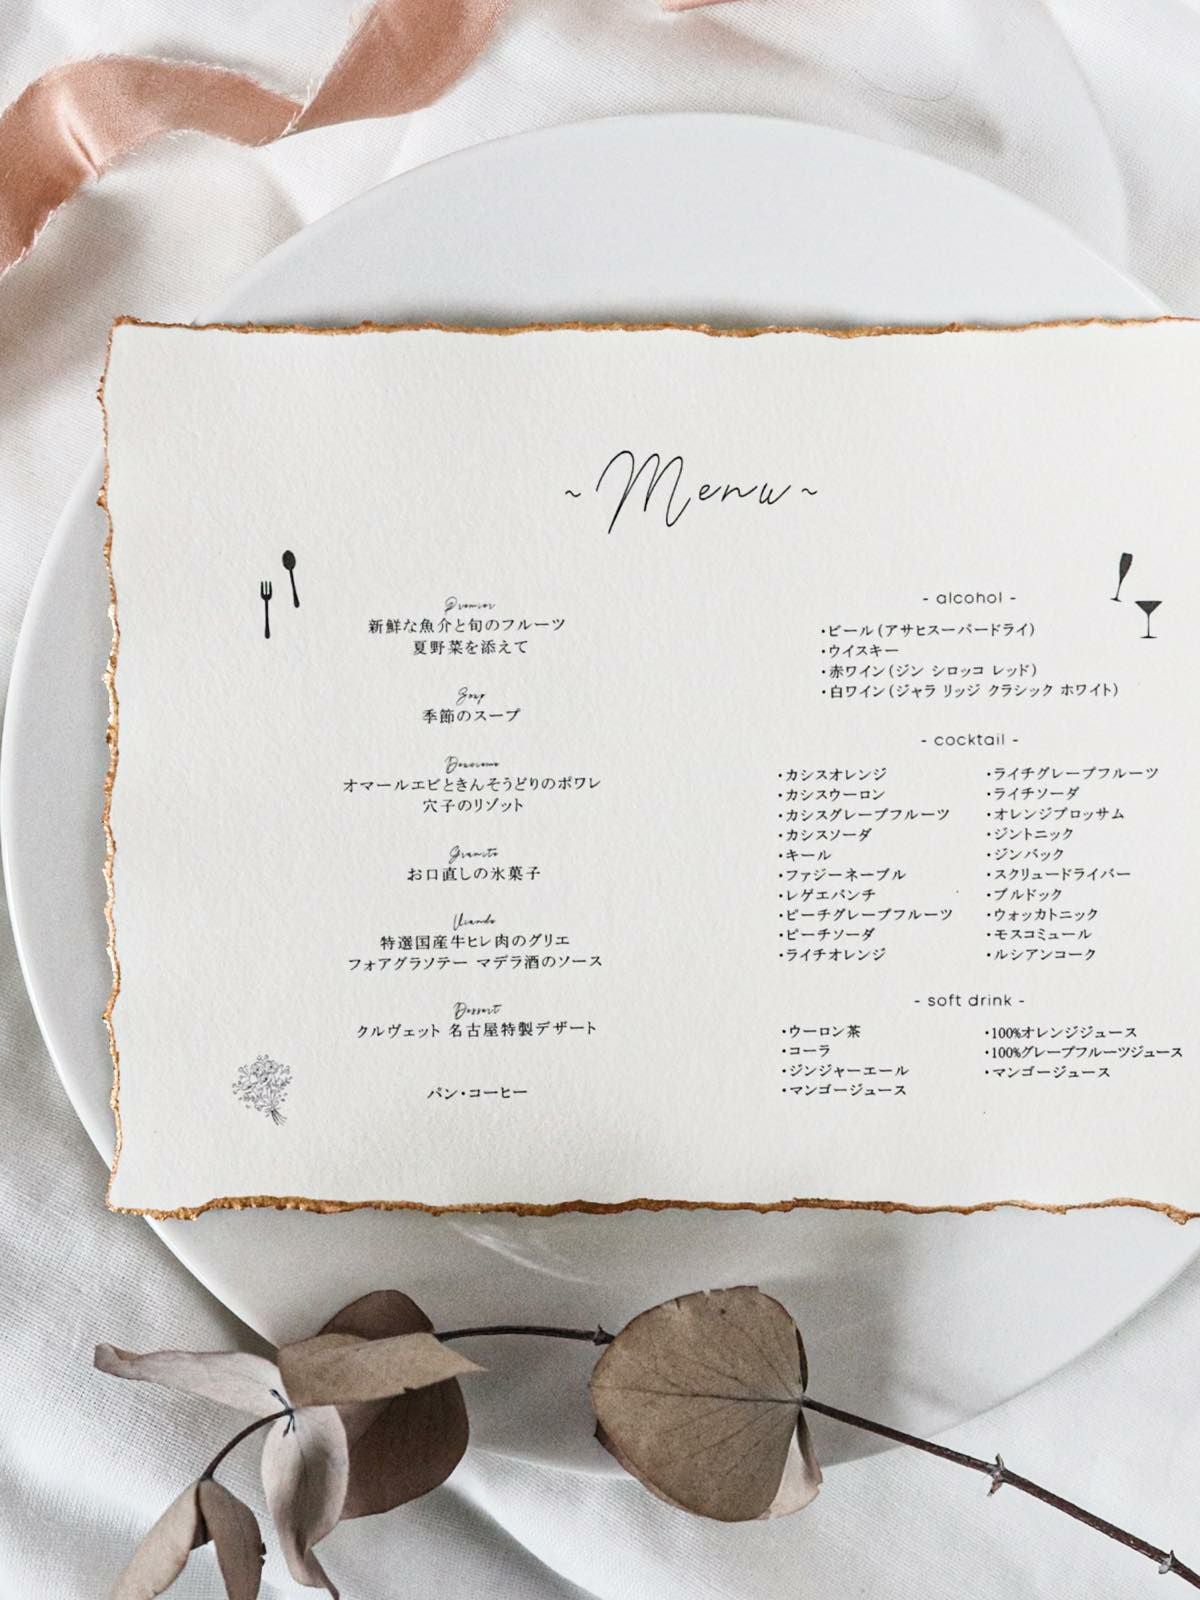 ~Menu~
Premier
新鮮な魚介と旬のフルーツ
夏野菜を添えて
Soup
季節のスープ
Deuxieme
オマールエビときんそうどりのポワレ
穴子のリゾット
Granite
お口直しの氷菓子
Viande
特選国産牛ヒレ肉のグリエ
フォアグラソテー マデラ酒のソース
Dessert
クルヴェット 名古屋特製デザート
パン・コーヒー
- alcohol -
・ビール(アサヒスーパードライ)
・ウイスキー
・赤ワイン(ジン シロッコ レッド)
・白ワイン(ジャラ リッジ クラシック ホワイト)
- cocktail -
・カシスオレンジ
・カシスウーロン
・カシスグレープフルーツ
・カシスソーダ
・キール
・ファジーネーブル
・レゲエパンチ
・ピーチグレープフルーツ
・ピーチソーダ
・ライチオレンジ
・ライチグレープフルーツ
・ライチソーダ
・オレンジブロッサム
・ジントニック
・ジンバック
・スクリュードライバー
・ブルドック
・ウォッカトニック
・モスコミュール
・ルシアンコーク
- soft drink -
・ウーロン茶
・コーラ
・ジンジャーエール
・マンゴージュース
・100%オレンジジュース
・100%グレープフルーツジュース
・マンゴージュース